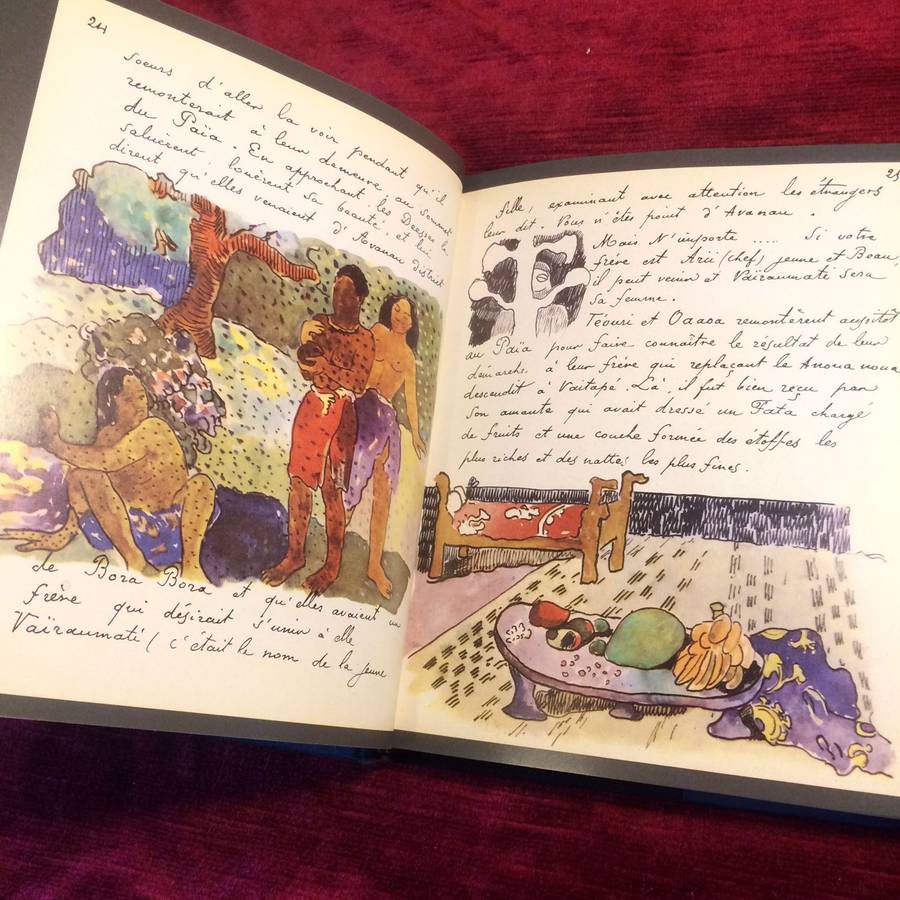 24
soeurs d'aller la voir pendant qu'il
remonterait à leur demeure au sommet
du Païa. En approchant les Deesses la
saluèrent, louèrent sa beauté, et lui
dirent qu'elles venaient d'Avanau district
de Bora Bora et qu'elles avaient un
frère qui désirait s'unir à elle
Vaïraumati (c'était le nom de la jeune
25
fille, examinant avec attention les étrangers
leur dit. Vous n'êtes point d'Avanau.
Mais N'importe .... Si votre
frère est Arii (chef) jeune et Beau,
il peut venir et Vaïraumati sera
Sa femme.
Téouri et Oaaoa remontèrent aussitôt
au Païa pour faire connaître le résultat de leur
démarche à leur frère qui replaçant le Anoua noua
descendit à Vaïtapé. Là il fut bien reçu par
son amante qui avait dressé un Fata chargé
de fruits et une couche formée des étoffes les
plus riches et des nattes les plus fines.